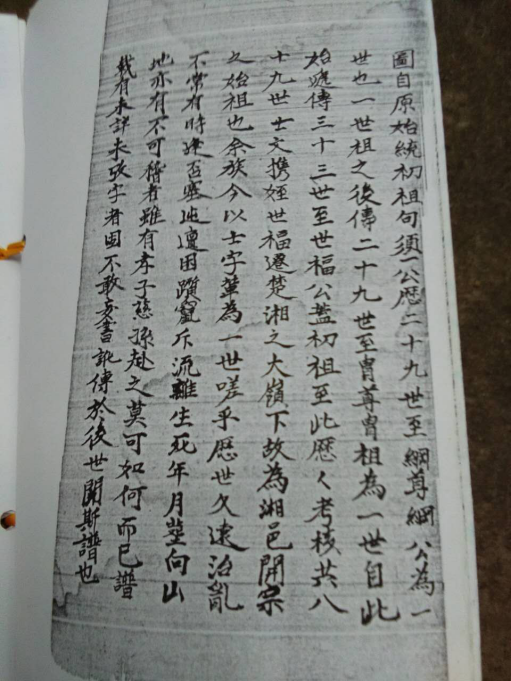 圖自原始統初祖句須一公歷二十九世至綱尊綱公為一
世也一世祖之後傳二十九世至胄尊胄祖為一世自此
始遞傳三十三世至世福公蓋初祖至此歷々考核共八
十九世士文携姪世福遷楚湘之大嶺下故為湘邑開宗
之始祖也余族今以士字輩為一世嗟乎歷世久遠治亂
不常有時逢否塞迍邅困躓竄斥流離生死年月塋向山
地亦有不可稽者雖有孝子慈孫赴之莫可如何而已譜
載有未詳未載字者固不敢妄書訛傳於後世閱斯譜也